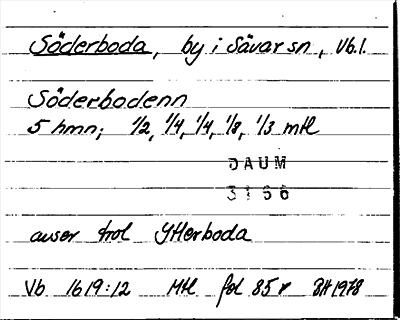 Söderboda, by i Sävar sn, Vb.l.
Söderbodenn
5 hmn; 1/2, 1/4, 1/4, 1/8, 1/3 mtl
DAUM
3166
avser trol Ytterboda
Vb 1619:12 Mtl fol 85r BH 1978